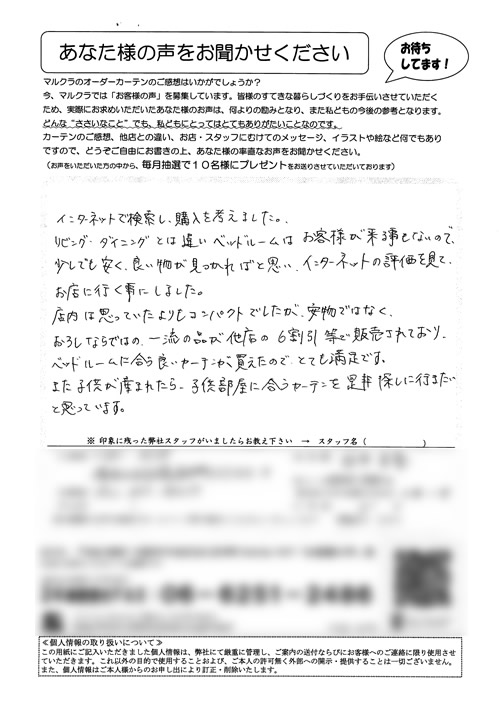 あなた様の声をお聞かせください
お待ち
してます！
マルクラのオーダーカーテンのご感想はいかがでしょうか？
今、マルクラでは「お客様の声」を募集しています。皆様のすてきな暮らしづくりをお手伝いさせていただく
ため、実際にお求めいただいたあなた様のお声は、何よりの励みとなり、また私どもの今後の参考となります。
どんな“ささいなこと”でも、私どもにとってはとてもありがたいことなのです。
カーテンのご感想、他店との違い、お店・スタッフにむけてのメッセージ、イラストや絵など何でもあり
ですので、どうぞご自由にお書きの上、あなた様の率直なお声をお聞かせください。
（お声をいただいた方の中から、毎月抽選で１０名様にプレゼントをお送りさせていただいております）
インターネットで検索し、購入を考えました。
リビング・ダイニングとは違いベッドルームはお客様が来る事もないので、
少しでも安く、良い物が見つかればと思い、インターネットの評価を見て、
お店に行く事にしました。
店内は思っていたよりもコンパクトでしたが、安物ではなく、
おろしならではの、一流の品が他店の6割引等で販売されており、
ベッドルームに合う良いカーテンが買えたので、とても満足です。
また子供が産まれたら、子供部屋に合うカーテンを是非探しに行きたい
と思っています。
※ 印象に残った弊社スタッフがいましたらお教え下さい → スタッフ名（ ）
≪個人情報の取り扱いについて≫
この用紙にご記入いただきました個人情報は、弊社にて厳重に管理し、ご案内の送付ならびにお客様へのご連絡に限り使用させ
ていただきます。これ以外の目的で使用することおよび、ご本人の許可無く外部への開示・提供することは一切ございません。
また、個人情報はご本人様からのお申し出により訂正・削除いたします。